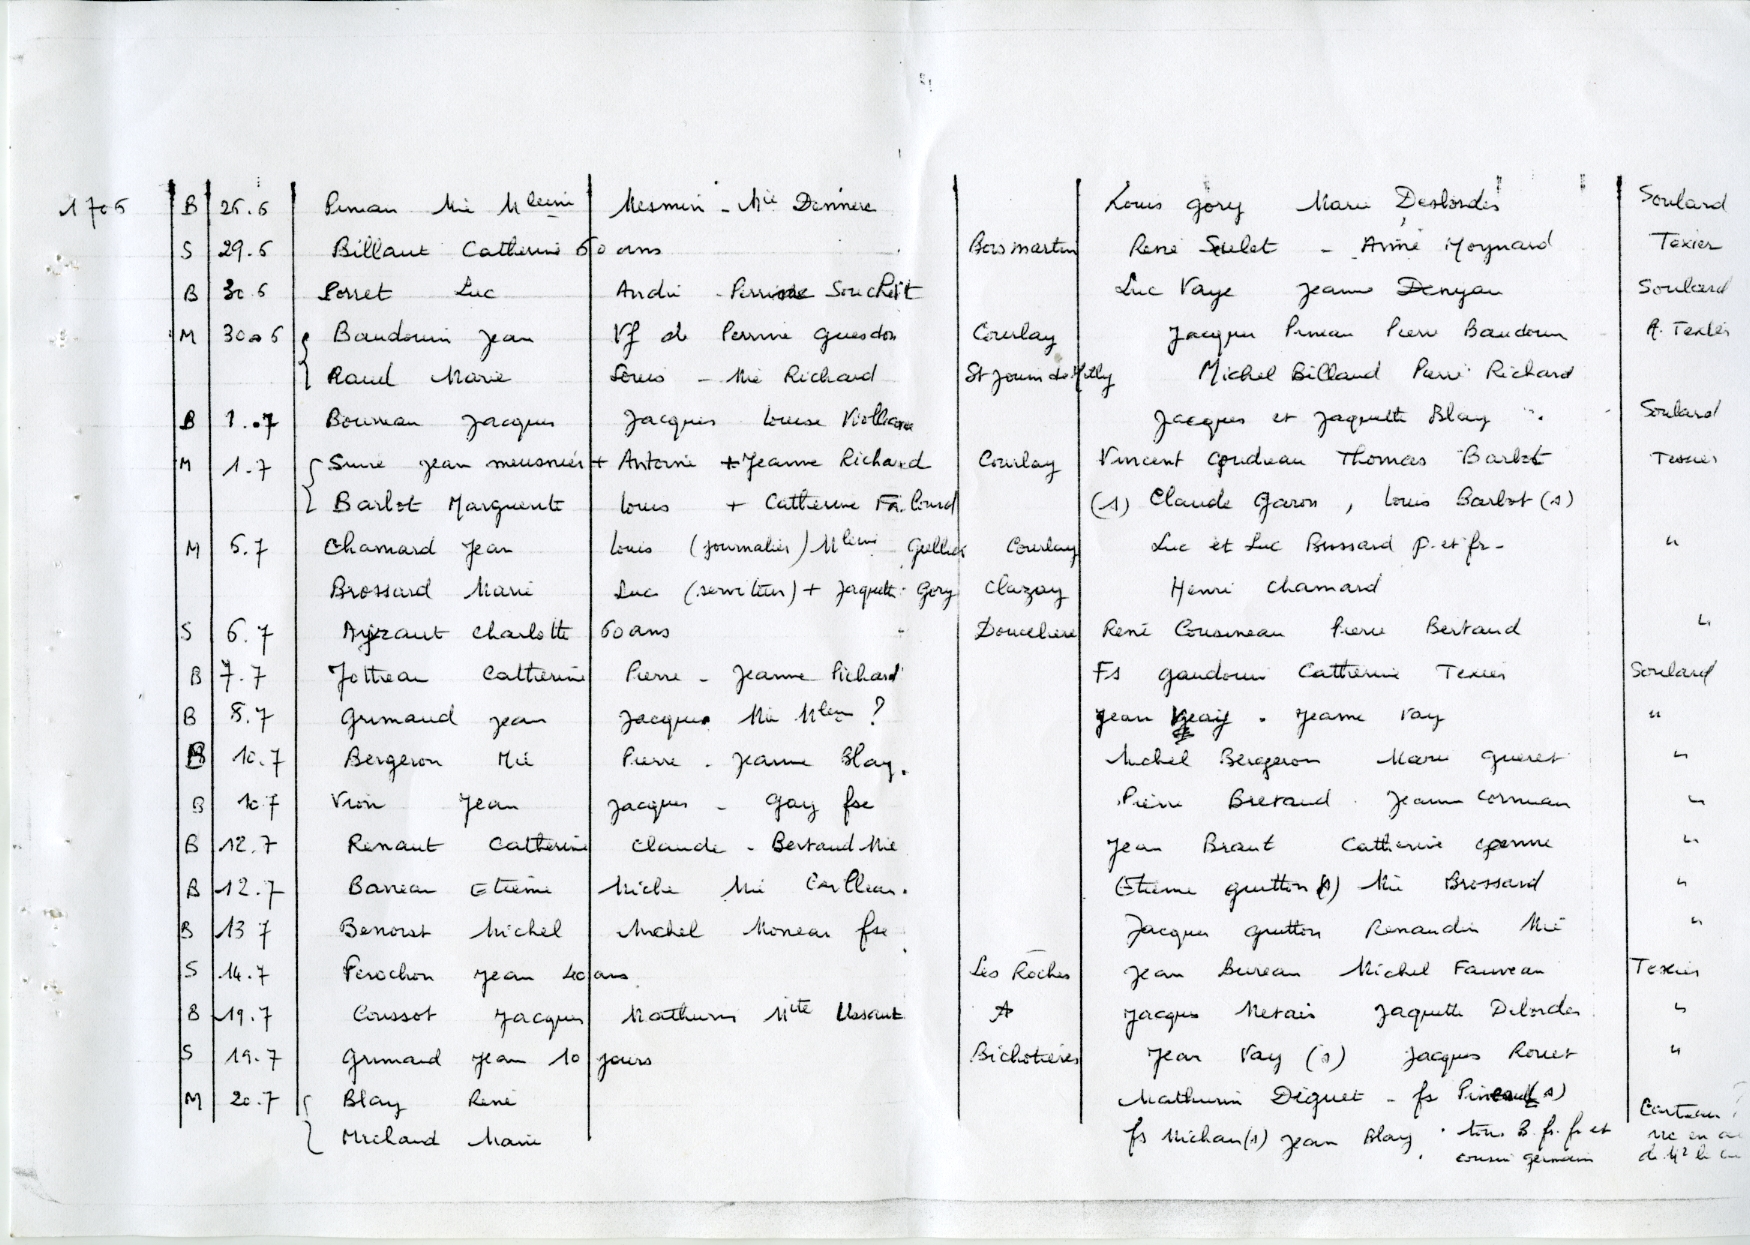 1706 B 25.6 Pineau Mie Mleine Mesmin - Mie Dennere Louis Gory Marie Desbordes Soulard
S 29.6 Billaut Catherine 60 ans Boismartin René Soulet - Aimé Moynard Texier
B 30.6 Porret Luc André - Perrine Souchet Luc Vaye Jeanne Denyau Soulard
M 30.6 Baudouin Jean Vf de Perrine Guesdon Courlay Jacques Pineau Pierre Baudouin A. Texier
Raud Marie Louis - Mie Richard St Jouin de Milly Michel Billaud Pierre Richard
B 1.7 Bouneau Jacques Jacques Louise Jacques et Jaquette Blay Soulard
M 1.7 Sure Jean meusnier + Antoine + Jeanne Richard Courlay Vincent Coudreau Thomas Barbot Texier
Barbot Marguerite Louis + Catherine (s) Claude Garon , Louis Barbot (s)
M 5.7 Chamard Jean Louis (journalier) Mleine Courlay Luc et Luc Brossard p. et fr. "
Brossard Marie Luc (serviteur) + Jaquette Gory Clazay Henri Chamard
S 6.7 Charlotte 60 ans Doucelière René Cousineau Pierre Bertaud "
B 7.7 Jottreau Catherine Pierre - Jeanne Pichard Fs Gaudouin Catherine Texier Soulard
B 8.7 Grimaud Jean Jacques Mie Mleine ? Jean Jeanne Vay "
B 10.7 Bergeron Mie Pierre - Jeanne Blay. Michel Bergeron Marie Gueret "
B 10.7 Vion Jean Jacques - Gay fse Pierre Bretaud Jeanne Cornuau "
B 12.7 Renaut Catherine Claude - Bertaud Mie Jean Braut Catherine "
B 12.7 Baneau Etienne Miche Mie Cailleau. Etienne Guitton (s) Mie Brossard "
B 13 7 Benoist Michel Michel Moneau fse Jacques Guitton Renaudin Mie "
S 14.7 Ferochon Jean 40 ans Les Roches Jean Bureau Michel Fauveau Texier
B 19.7 Coussot Jacques Mathurin Mite Ussaut A Jacques Metais Jaquette Delordes "
S 19.7 Grimaud Jean 10 jours Bichotières Jean Vay (s) Jacques Rouet "
M 20.7 Blay René Mathurin Diguet - fs Pineau (s)
Michaud Marie fs Michau (s) Jean Blay. tous B. fr. fr et
cousin germain